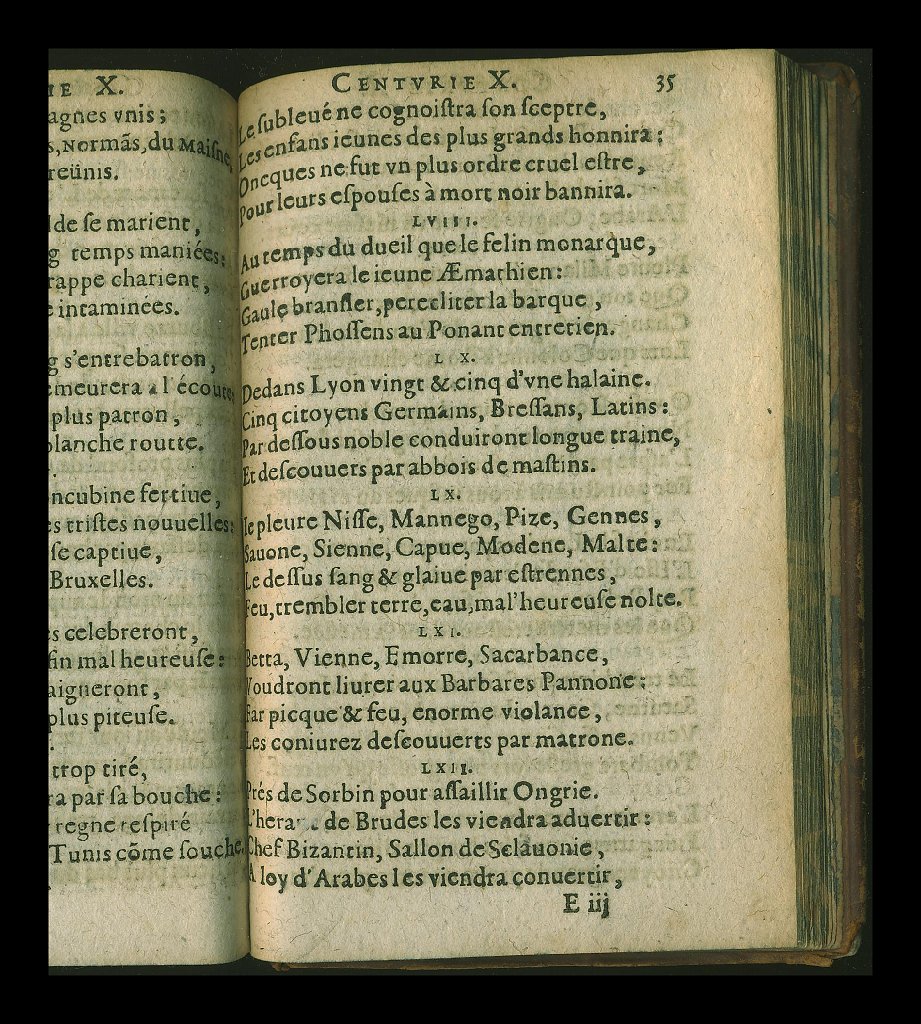 IE X.
agnes vnis;
s, Normãs, du Maisne,
reünis.
de se marient,
g temps maniées:
rappe charient,
intaminées.
g s'entrebatron,
meurera a l'écoute:
plus patron,
blanche routte.
ncubine fertiue,
s tristes nouuelles:
se captiue,
Bruxelles.
s celebreront,
fin mal heureuse:
aigneront,
plus piteuse.
trop tiré,
ra par sa bouche:
regne respiré
Tunis cõme souche.
CENTVRIE X. 35
Le subleué ne cognoistra son sceptre,
Les enfans ieunes des plus grands honnira:
Oncques ne fut vn plus ordre cruel estre,
Pour leurs espouses à mort noir bannira.
LVIII.
Au temps du dueil que le felin monarque,
Guerroyera le ieune Æmathien:
Gaule bransler, perecliter la barque,
Tenter Phossens au Ponant entretien.
LX.
Dedans Lyon vingt & cinq d'vne halaine.
Cinq citoyens Germains, Bressans, Latins:
Par dessous noble conduiront longue traine,
Et descouuers par abbois de mastins.
LX.
Ie pleure Nisse, Mannego, Pize, Gennes,
Sauone, Sienne, Capue, Modene, Malte:
Le dessus sang & glaiue par estrennes,
Feu, trembler terre, eau, mal'heureuse nolte.
LXI.
Betta, Vienne, Emorre, Sacarbance,
Voudront liurer aux Barbares Pannone:
Par picque & feu, enorme violance,
Les coniurez descouuerts par matrone.
LXII.
Prés de Sorbin pour assaillir Ongrie.
L'hera de Brudes les viendra aduertir:
Chef Bizantin, Sallon de Sclauonie,
A loy d'Arabes les viendra conuertir,
E iij